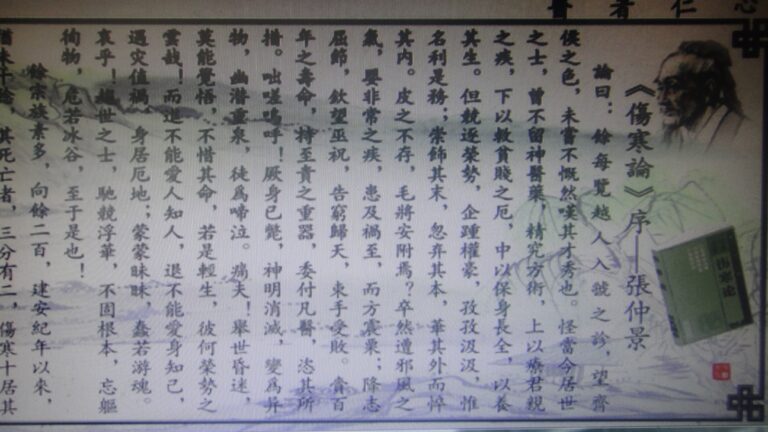 《傷寒論》序—張仲景
論曰:餘每覽越人入虢之診,望齊
侯之色,未嘗不慨然嘆其才秀也。怪當今居世
之士,曾不留神醫藥,精究方術,上以療君親
之疾,下以救貧賤之厄,中以保身長全,以養
其生。但競逐榮勢,企踵權豪,孜孜汲汲,惟
名利是務;崇飾其末,忽弃其本,華其外而悴
其内。皮之不存,毛將安附焉?卒然遭邪風之
氣,嬰非常之疾,患及禍至,而方震栗;降志
屈節,欽望巫祝,告窮歸天,束手受敗。賫百
年之壽命,持至貴之重器,委付凡醫,恣其所
措。咄嗟嗚呼!厥身已斃,神明消滅,變爲异
物,幽潜重泉,徒爲啼泣。痛夫!舉世昏迷,
莫能覺悟,不惜其命,若是輕生,彼何榮勢之
雲哉!而進不能愛人知人,退不能愛身知己,
遇灾值禍,身居厄地;蒙蒙昧昧,蠢若游魂。
哀乎!趨世之士,馳競浮華,不固根本,忘軀
徇物,危若冰谷,至于是也!
餘宗族素多,向餘二百,建安紀年以來,
猶未十稔,其死亡者,三分有二,傷寒十居其